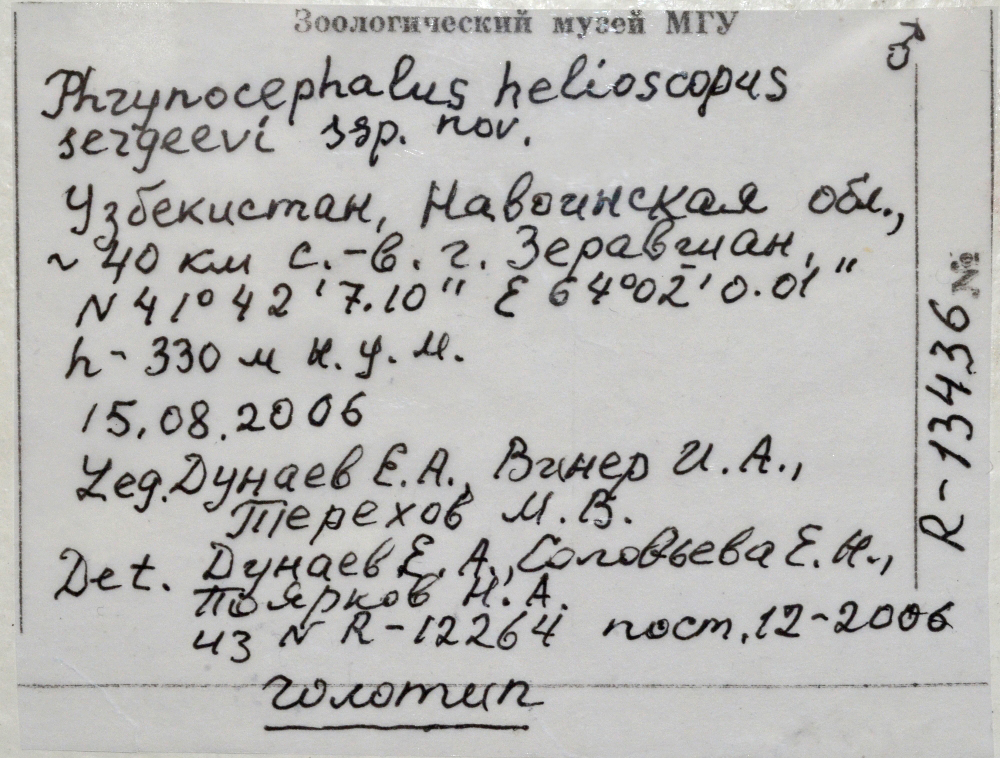 Зоологический музей МГУ
♂
Phrynocephalus helioscopus
sergeevi ssp. nov.
Узбекистан, Навоинская обл.,
~ 40 км с.-в. г. Зеравшан,
N 41°42'7.10" E 64°02'0.01"
h ~ 330 м н.у.м.
15.08.2006
Leg. Дунаев Е.А., Винер И.А.,
Терехов М.В.
Det. Дунаев Е.А., Соловьева Е.Н.,
Поярков Н.А.
из N R-12264 пост. 12-2006
голотип
R-13436 №